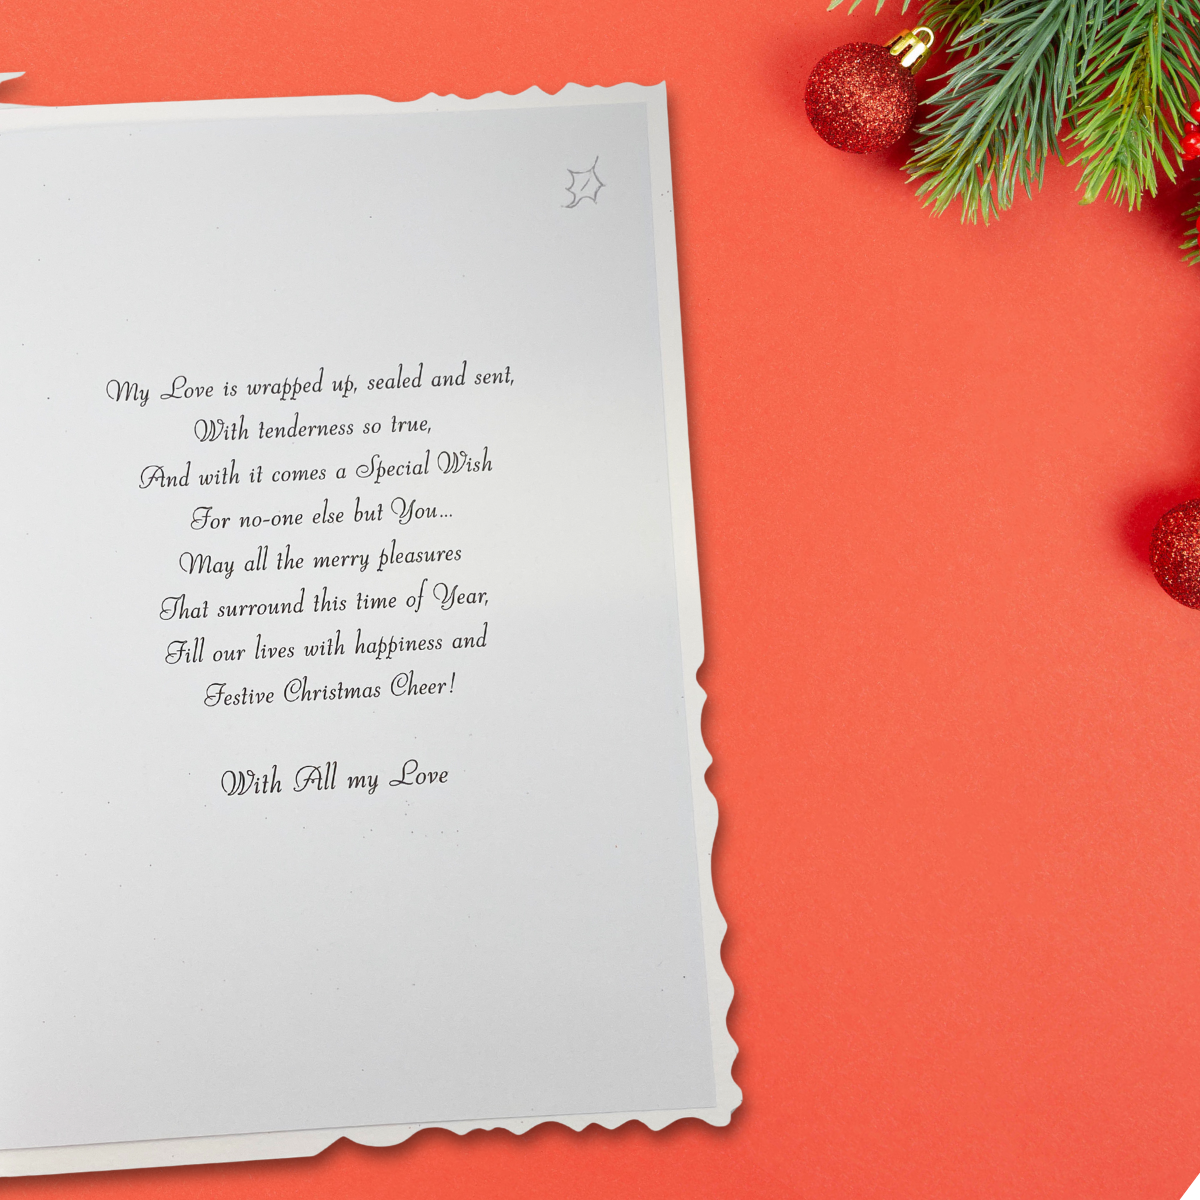 My Love is wrapped up, sealed and sent,
With tenderness so true,
And with it comes a Special Wish
For no-one else but You...
May all the merry pleasures
That surround this time of Year,
Fill our lives with happiness and
Festive Christmas Cheer!
With All my Love